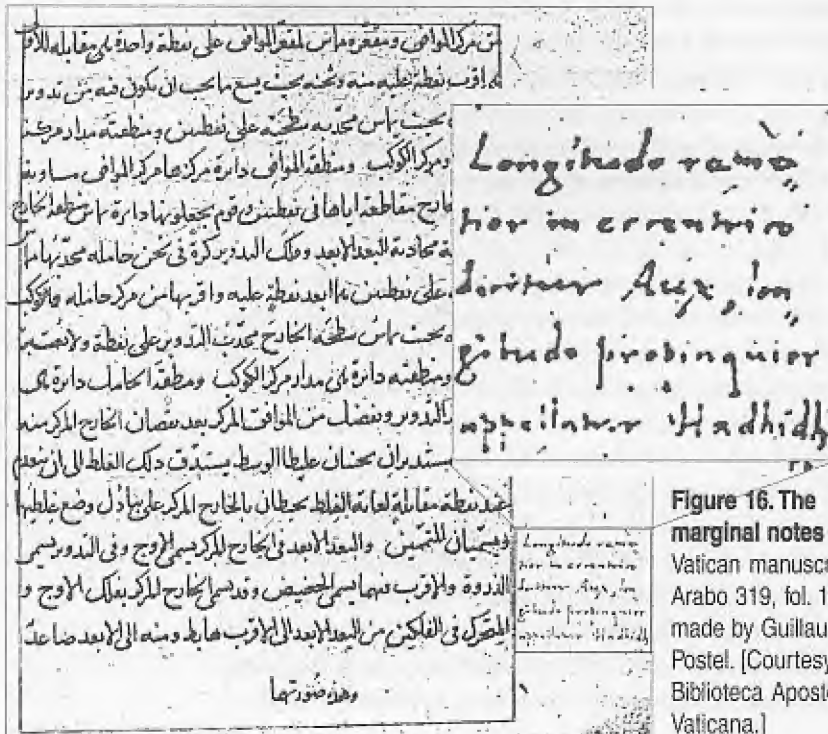 من مركز الموافق ومقعره مماس لمقعر الموافق على نقطة واحدة هي مقابلة
اقرب نقطة عليه منه وثخنه بحيث يسع ما يجب ان يكون فيه من تدوير
بحيث يماس محدبه سطحيه على نقطتين ومنطقته مدار مركز
ومركز الكوكب ومنطقة الموافق دائرة مركزها مركز الموافق مساوية
خارج مقاطعة اياها في نقطتين وقوم يجعلونها دائرة تماس منطقة الخارج
محاذية للبعد الابعد وفلك التدوير كرة في ثخن حامله محدبها
على نقطتين هما ابعد نقطة عليه واقربها من مركز حامله والكوكب
بحيث يماس سطحه الخارج محدب التدوير على نقطة ولا
ومنطقته دائرة هي مدار مركز الكوكب ومنطقة الحامل دائرة هي
التدوير ويفضل من الموافق المركز بعد نقصان الخارج المركز منه
مستديران ثخينان غليظا الوسط يستدق ذلك الغلظ الى ان ينعدم
عند نقطة مقابلة لغاية الغلظ يحيطان بالخارج المركز على تبادل وضع غلظيهما
ويسميان المتممين والبعد الابعد في الخارج المركز يسمى الاوج وفي التدوير يسمى
الذروة والاقرب فيهما يسمى الحضيض وقد يسمى الخارج المركز بفلك الاوج و
المتحرك في الفلكين من البعد الابعد الى الاقرب هابط ومنه الى الابعد صاعد
وهذه صورتهما
Longitudo remo
tior in eccentrico
dicitur Aux, lon
gitudo propinquior
appellatur Hadhidh
Longitudo remo
tior in eccentrico
dicitur Aux, lon
gitudo propinquior
appellatur Hadhidh
Figure 16. The
marginal notes
Vatican manusc
Arabo 319, fol. 1
made by Guillau
Postel. [Courtesy
Biblioteca Aposto
Vaticana.]